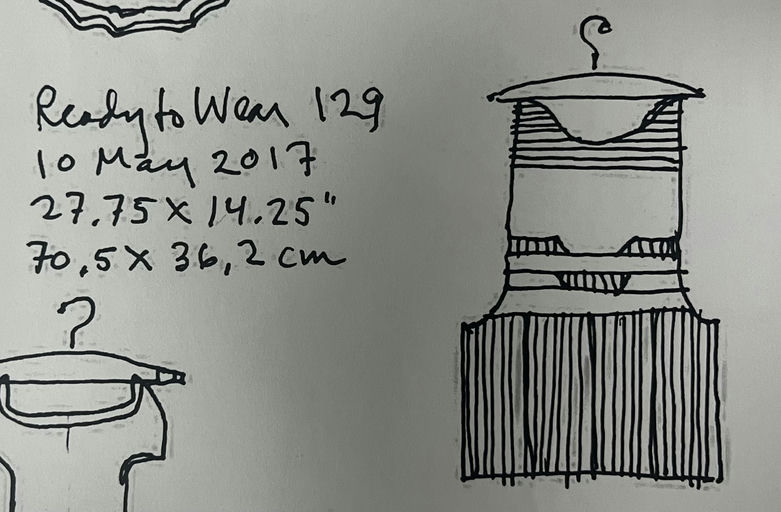 Ready to Wear 129
10 May 2017
27.75 X 14.25"
70,5 X 36,2 cm